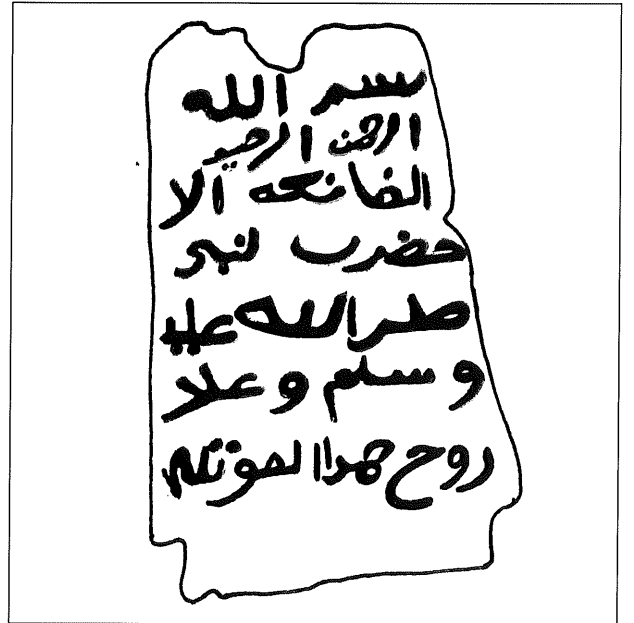 بسم الله
الرحمن الرحيم
الفاتحه الا
حضرت لنبي
صلى الله عليه
وسلم وعلا
روح